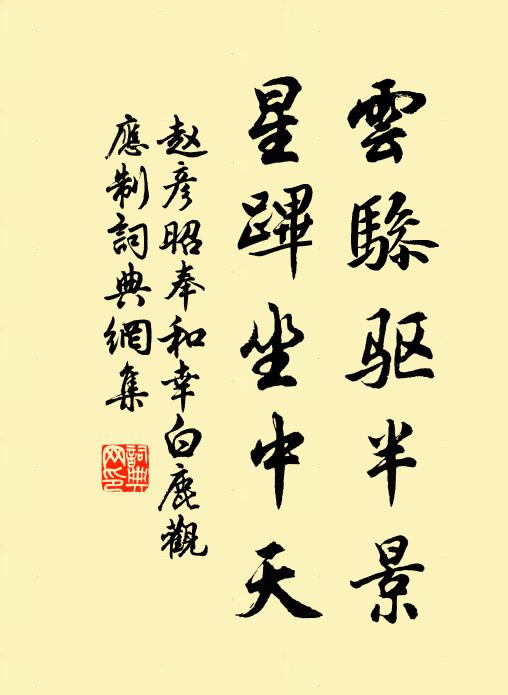 雲驂驱半景
星蹕坐中天
赵彦昭奉和幸白鹿觀
應制詞典網集
詞典
网印